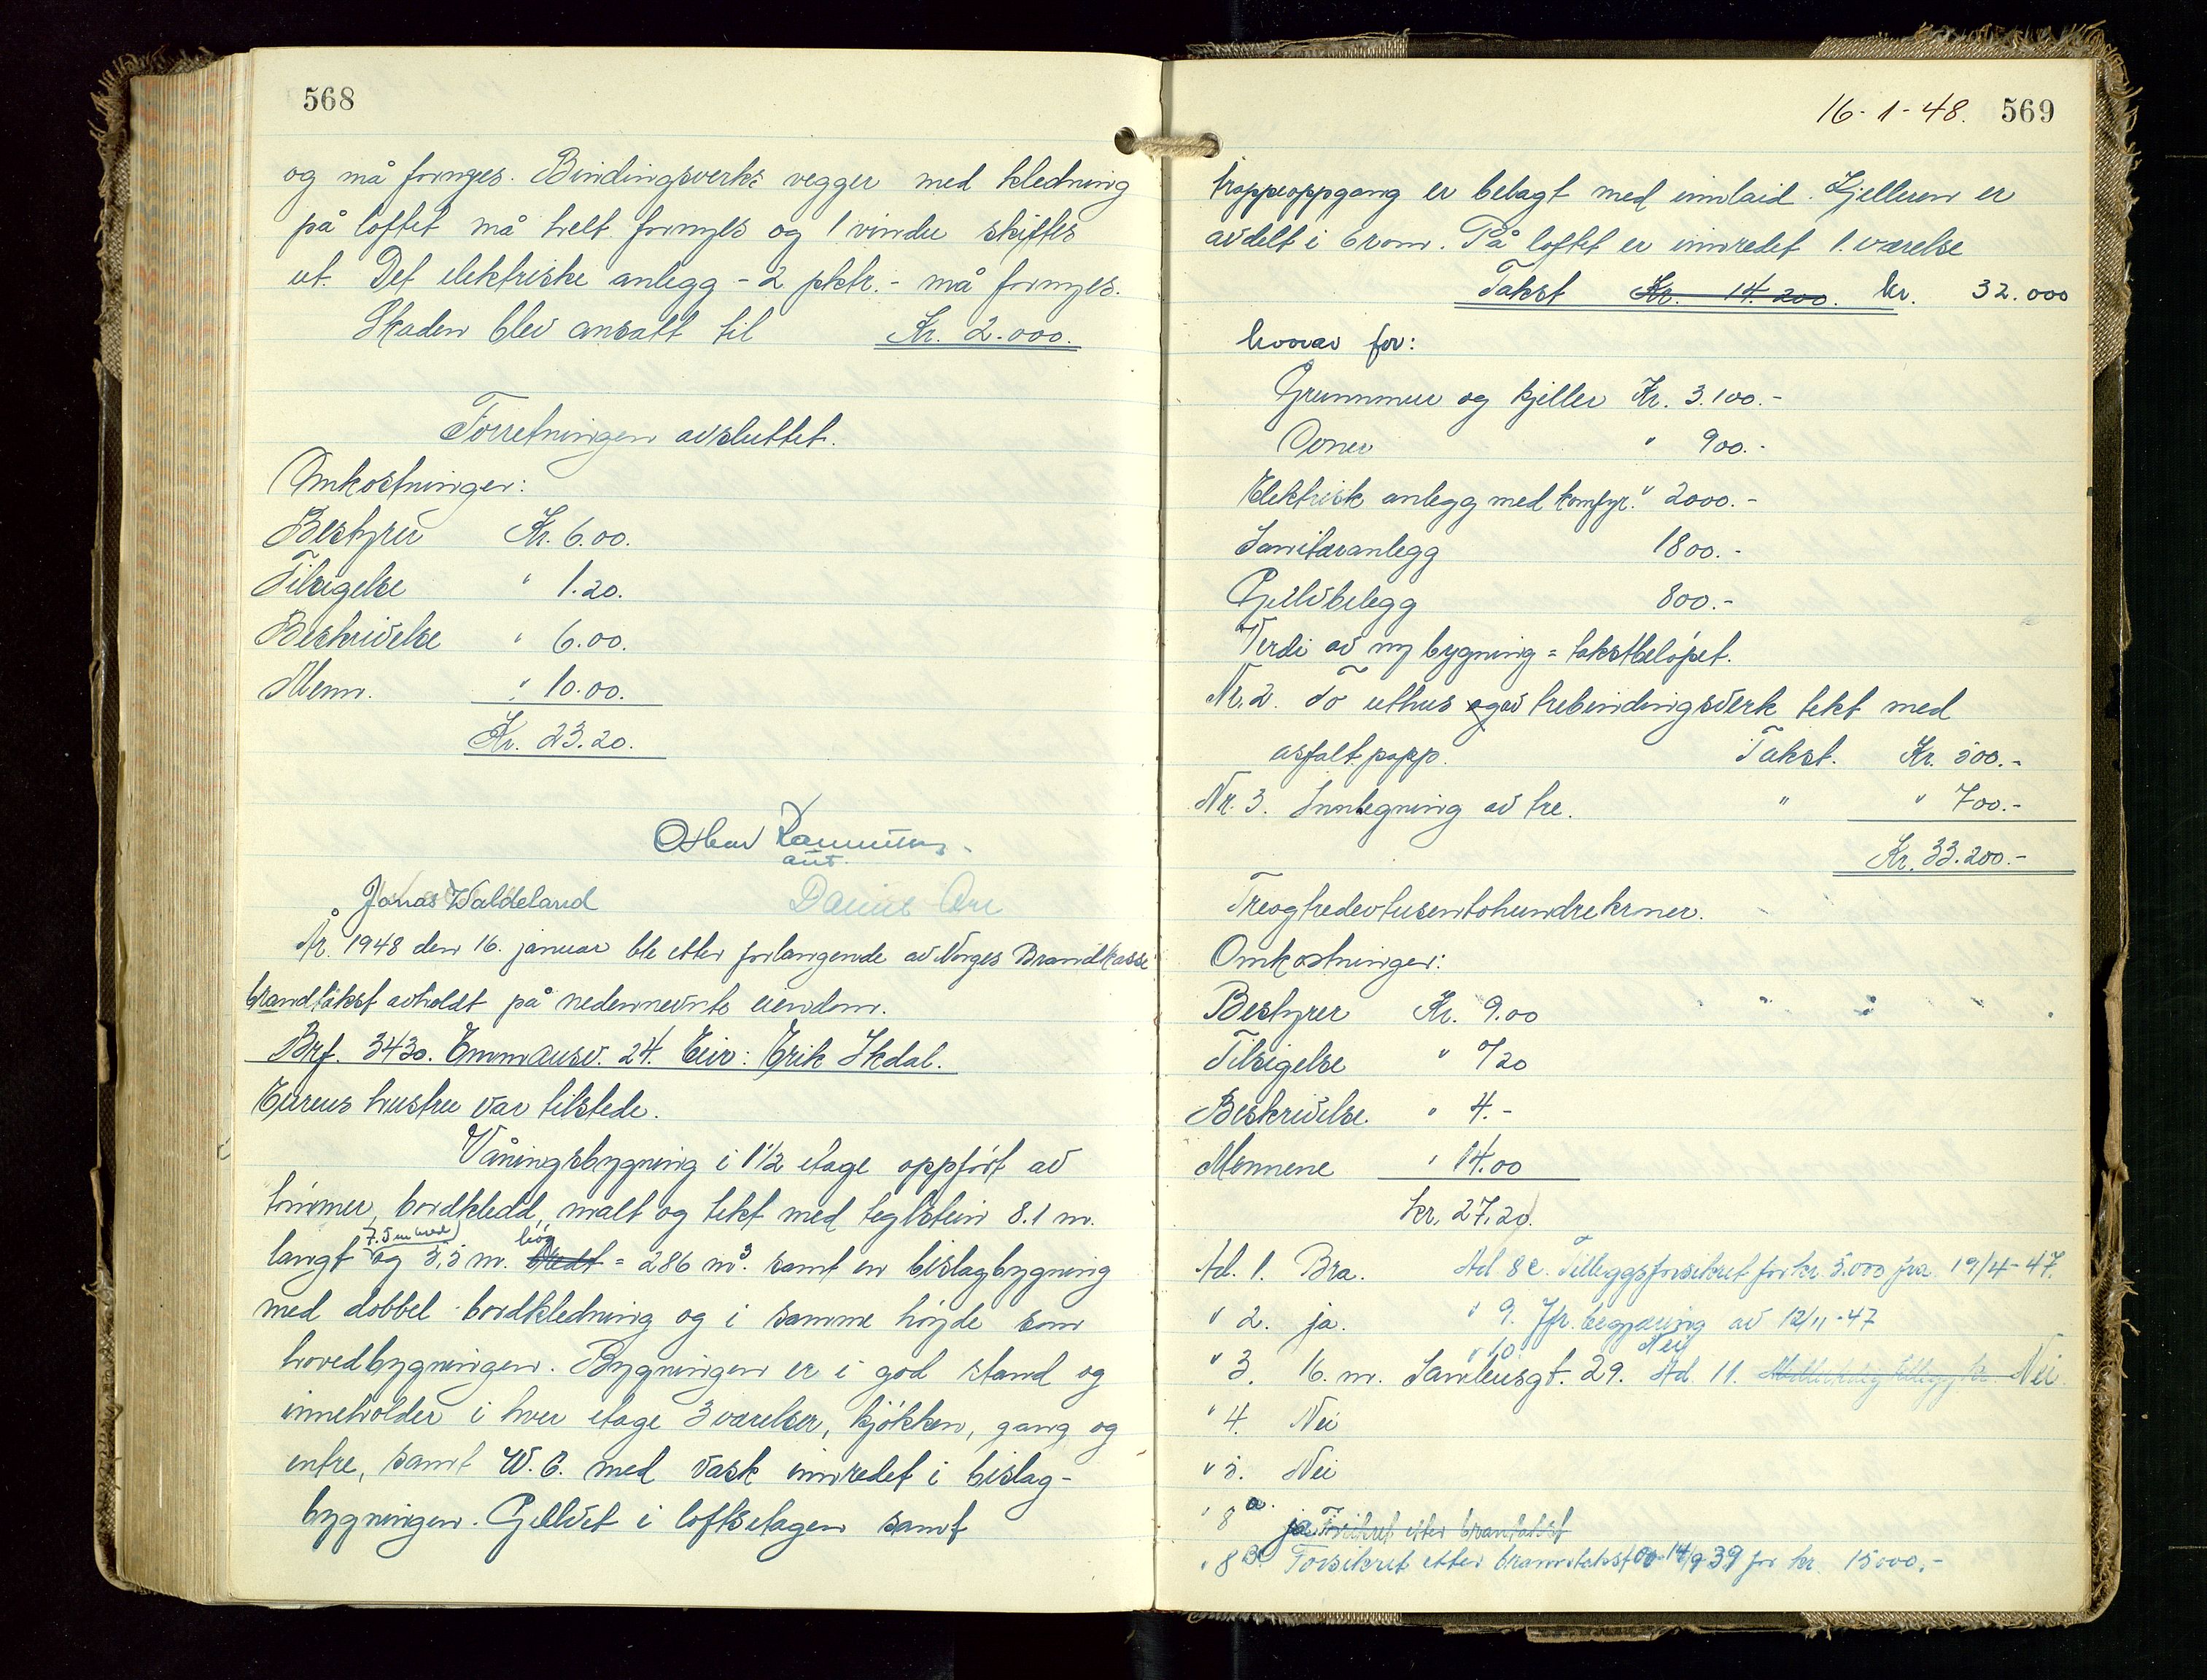 568
og må fornyes. Bindingsverks vegger med kledning
på loftet må helt fornyes og 1 vindu skiftes
ut. Det elektriske anlegg - 2 pktr. - må fornyes.
Skaden blev ansatt til Kr. 2.000.
Forretningen avsluttet.
Omkostninger:
Bestyrer Kr. 6.00.
Tilsigelse " 1.20.
Beskrivelse " 6.00.
Menn. " 10.00.
Kr. 23.20.
Oskar
ass.
Jonas Waldeland Daniel
År 1948 den 16. januar ble etter forlangende av Norges Brandkasse
brandtakst avholdt på nedennevnte eiendom.
Brf. 3430. Emmausv. 24. Eier: Erik Skdal.
Eierens hustru var tilstede.
Våningsbygning i 1 1/2 etage oppført av
tømmer, bordkledd, malt og tekt med teglstein 8.1 m.
7.5 m bred høy
langt og 5,5 m. bredt = 286 m³. samt en bislagbygning
med dobbel bordkledning og i samme høyde som
hovedbygningen. Bygningen er i god stand og
inneholder i hver etage 3 værelser, kjøkken, gang og
entre, samt W.C. med vask innredet i bislag-
bygningen. Gulvet i loftsetagen samt
16-1-48. 569
trappeoppgang er belagt med innlaid. Kjelleren er
avdelt i 6 rom. På loftet er innredet 1. værelse
Takst Kr. 14.200. kr. 32.000
hvorav for:
Grunnmur og kjeller Kr. 3.100.-
Ovner " 900.-
Elektrisk anlegg med komfyr. " 2000.-
Sanitæranlegg 1800.-
Gulvbelegg 800.-
Verdi av ny bygning = takstbeløpet.
Nr. 2. To uthus og av trebindingsverk tekt med
asfalt papp. Takst. Kr. 500.-
Nr. 3. Innhegning av tre. " " 700.-
Kr. 33.200.-
Treogtredevtusentohundrekroner.
Omkostninger:
Bestyrer Kr. 9.00
Tilsigelse " 0/20
Beskrivelse. " 4.-
Mennene " 14.00
kr. 27.20.
Ad. 1. Bra. Ad 8c. Tilleggsforsikret for kr. 5.000 fra 19/4-47.
" 2. ja. " 9. Jfr. begjæring av 12/11-47
" 10 Nei
" 3. 16. m. Sandeusgt. 29. Ad. 11. Nei.
" 4. Nei
" 5. Nei
" 8 a. ja Forsikret etter branntakst
" 8 B. Forsikret etter branntakst av 14/9-39 for kr. 15000.-